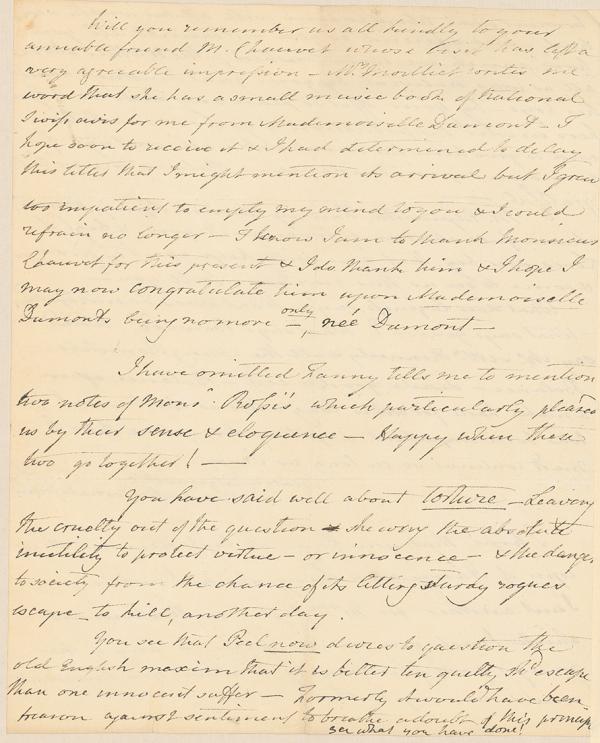 Will you remember us all kindly to your
amiable friend M. Chauvet whose visit has left a
very agreeable impression – Mrs. Moilliet writes me
word that she has a small music book of National
Swiss airs for me from Mademoiselle Dumont – I
hope soon to receive it & I had determined to delay
this letter that I might mention its arrival but I grew
too impatient to empty my mind to you & I could
refrain no longer – I know I am to thank Monsieur
Chauvet for this present & I do thank him & I hope I
may now congratulate him upon Mademoiselle
Dumonts being no more – only, née Dumont –
I have omitted Fanny tells me to mention
two notes of Monsr. Rossi's which particularly pleased
us by their sense & eloquence – Happy when these
two go together! –
You have said well about torture – Leaving
the cruelty out of the question – shewing the absolute
inutility to protect virtue – or innocence – & the danger
to society from the chance of its letting sturdy rogues
escape to kill, another day.
You see that Peel now dares to question the
old English maxim that it is better ten guilty shd. escape
than one innocent suffer – Formerly it would have been
treason against sentiment to breathe a doubt of this principle
see what you have done!